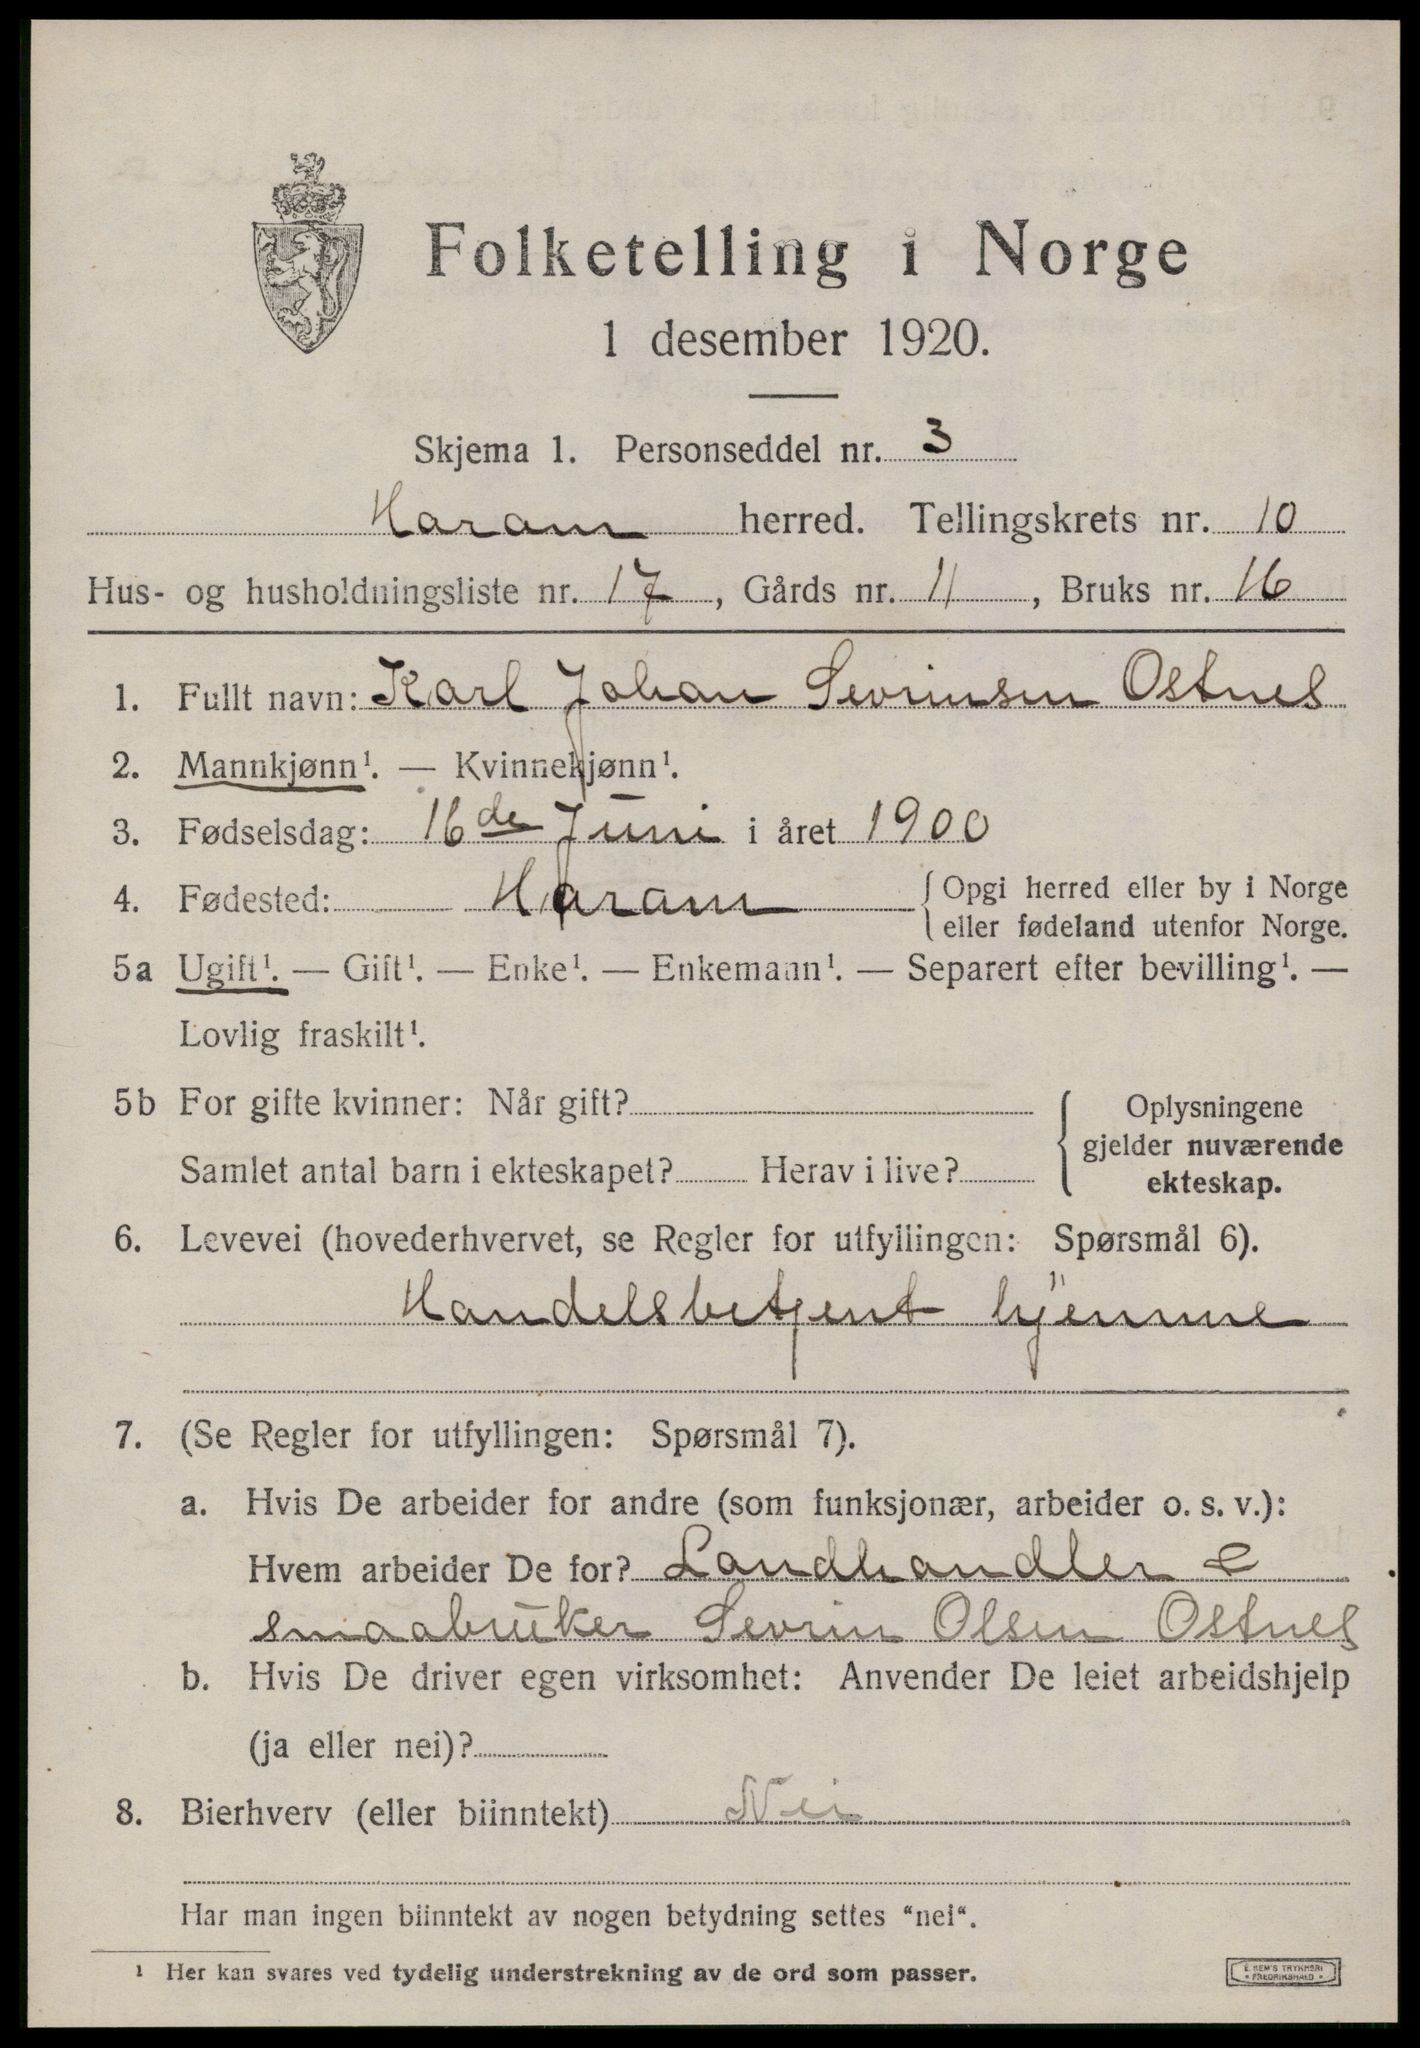 Folketelling i Norge
1 desember 1920.
Skjema 1. Personseddel nr. 3
Haram herred. Tellingskrets nr. 10
Hus- og husholdningsliste nr. 17, Gårds nr. 11, Bruks nr. 16
1. Fullt navn: Karl Johan Sevrinsen Ostnes
2. Mannkjønn¹. — Kvinnekjønn¹.
3. Fødselsdag: 16de Juni i året 1900
4. Fødested: Haram { Opgi herred eller by i Norge
eller fødeland utenfor Norge.
5a Ugift¹. — Gift¹. — Enke¹. — Enkemann¹. — Separert efter bevilling¹. —
Lovlig fraskilt¹.
5b For gifte kvinner: Når gift?
Samlet antal barn i ekteskapet? Herav i live?
{ Oplysningene
gjelder nuværende
ekteskap.
6. Levevei (hovederhvervet, se Regler for utfyllingen: Spørsmål 6).
Handelsbetjent hjemme
7. (Se Regler for utfyllingen: Spørsmål 7).
a. Hvis De arbeider for andre (som funksjonær, arbeider o. s. v.):
Hvem arbeider De for? Landhandler &
smaabruker Sevrin Olsen Ostnes
b. Hvis De driver egen virksomhet: Anvender De leiet arbeidshjelp
(ja eller nei)?
8. Bierhverv (eller biinntekt) Nei
Har man ingen biinntekt av nogen betydning settes “nei“.
¹ Her kan svares ved tydelig understrekning av de ord som passer.
E. SEM'S TRYKKERI
• FREDRIKSHALD •